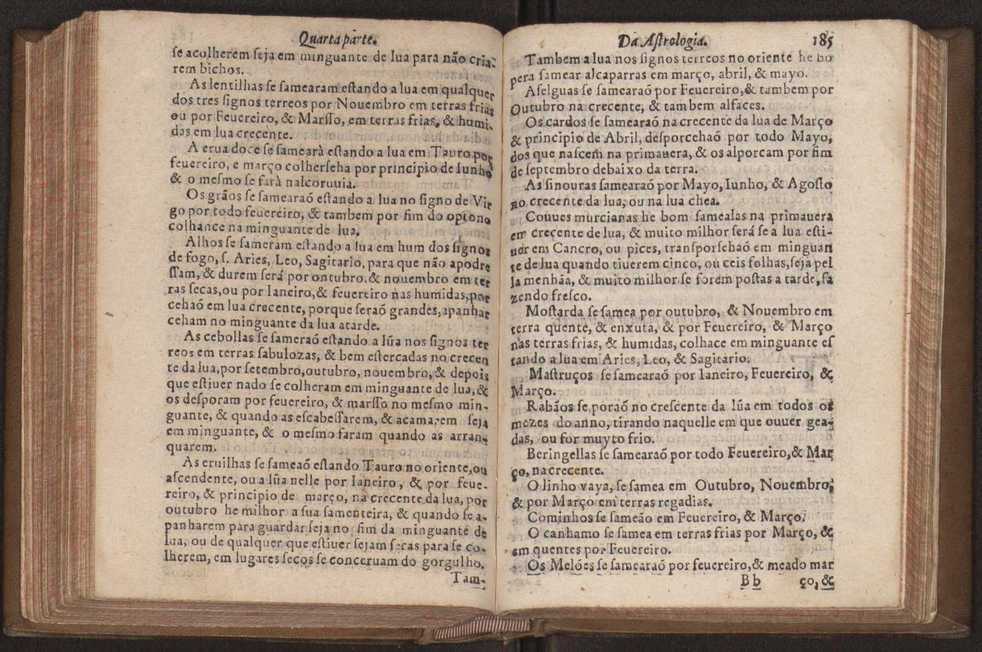 Quarta parte.
se acolherem seja em minguante de lua para não cria-
rem bichos.
As lentilhas se samearam estando a lua em qualquer
dos tres signos terreos por Nouembro em terras frias
ou por Feuereiro, & Marsso, em terras frias, & humi-
das em lua crecente.
A erua doce se sameará estando a lua em Tauro por
feuereiro, e março colherseha por principio de Iunho
& o mesmo se fará nalcoruuia.
Os grãos se samearaó estando a lua no signo de Vir
go por todo feuereiro, & tambem por fim do optono
colhance na minguante de lua.
Alhos se sameram estando a lua em hum dos signos
de fogo, s. Aries, Leo, Sagitario, para que não apodre
ssam, & durem será por outubro, & nouembro em ter
ras secas, ou por Ianeiro, & feuereiro nas humidas, por
cehaó em lua crecente, porque seraó grandes, apanhar
ceham no minguante da lua atarde.
As cebollas se sameraó estando a lúa nos signos ter
reos em terras sabulozas, & bem estercadas no crecen
te da lua, por setembro, outubro, nouembro, & depois
que estiuer nado se colheram em minguante de lua, &
os desporam por feuereiro, & marsso no mesmo min-
guante, & quando as escabessarem, & acamarem seja
em minguante, & o mesmo faram quando as arran-
quarem.
As eruilhas se sameaó estando Tauro no oriente, ou
ascendente, ou a lúa nelle por Ianeiro, & por feue-
reiro, & principio de março, na crecente da lua, por
outubro he milhor a sua samenteira, & quando se a-
panharem para guardar seja no fim da minguante de
lua, ou de qualquer que estiuer sejam secas para se co-
lherem, em lugares secos se conceruam do gorgulho.
Tam-
Da Astrologia. 185
Tambem a lua nos signos terreos no oriente he bo
pera samear alcaparras em março, abril, & mayo.
Aselguas se samearaó por Feuereiro, & tambem por
Outubro na crecente, & tambem alfaces.
Os cardos se samearaó na crecente da lua de Março
& principio de Abril, desporcehaó por todo Mayo,
dos que nascem na primauera, & os alporcam por fim
de septembro debaixo da terra.
As sinouras samearaó por Mayo, Iunho, & Agosto
no crecente da lua, ou na lua chea.
Couues murcianas he bom samealas na primauera
em crecente de lua, & muito milhor será se a lua esti-
uer em Cancro, ou pices, transporsehaó em minguan
te de lua quando tiuerem cinco, ou ceis folhas, seja pel
la menhãa, & muito milhor se forem postas a tarde, fa
zendo fresco.
Mostarda se samea por outubro, & Nouembro em
terra quente, & enxuta, & por Feuereiro, & Março
nas terras frias, & humidas, colhace em minguante es
tando a lua em Aries, Leo, & Sagitario.
Mastruços se samearaó por Ianeiro, Feuereiro, &
Março.
Rabãos se poraó no crescente da lúa em todos os
mezes do anno, tirando naquelle em que ouuer gea-
das, ou for muyto frio.
Beringellas se samearaó por todo Feuereiro, & Mar
ço, na crecente.
O linho vaya, se samea em Outubro, Nouembro,
& por Março em terras regadias.
Cominhos se sameão em Feuereiro, & Março.
O canhamo se samea em terras frias por Março, &
em quentes por Feuereiro.
Os Melões se samearaó por feuereiro, & meado mar
Bb ço, &